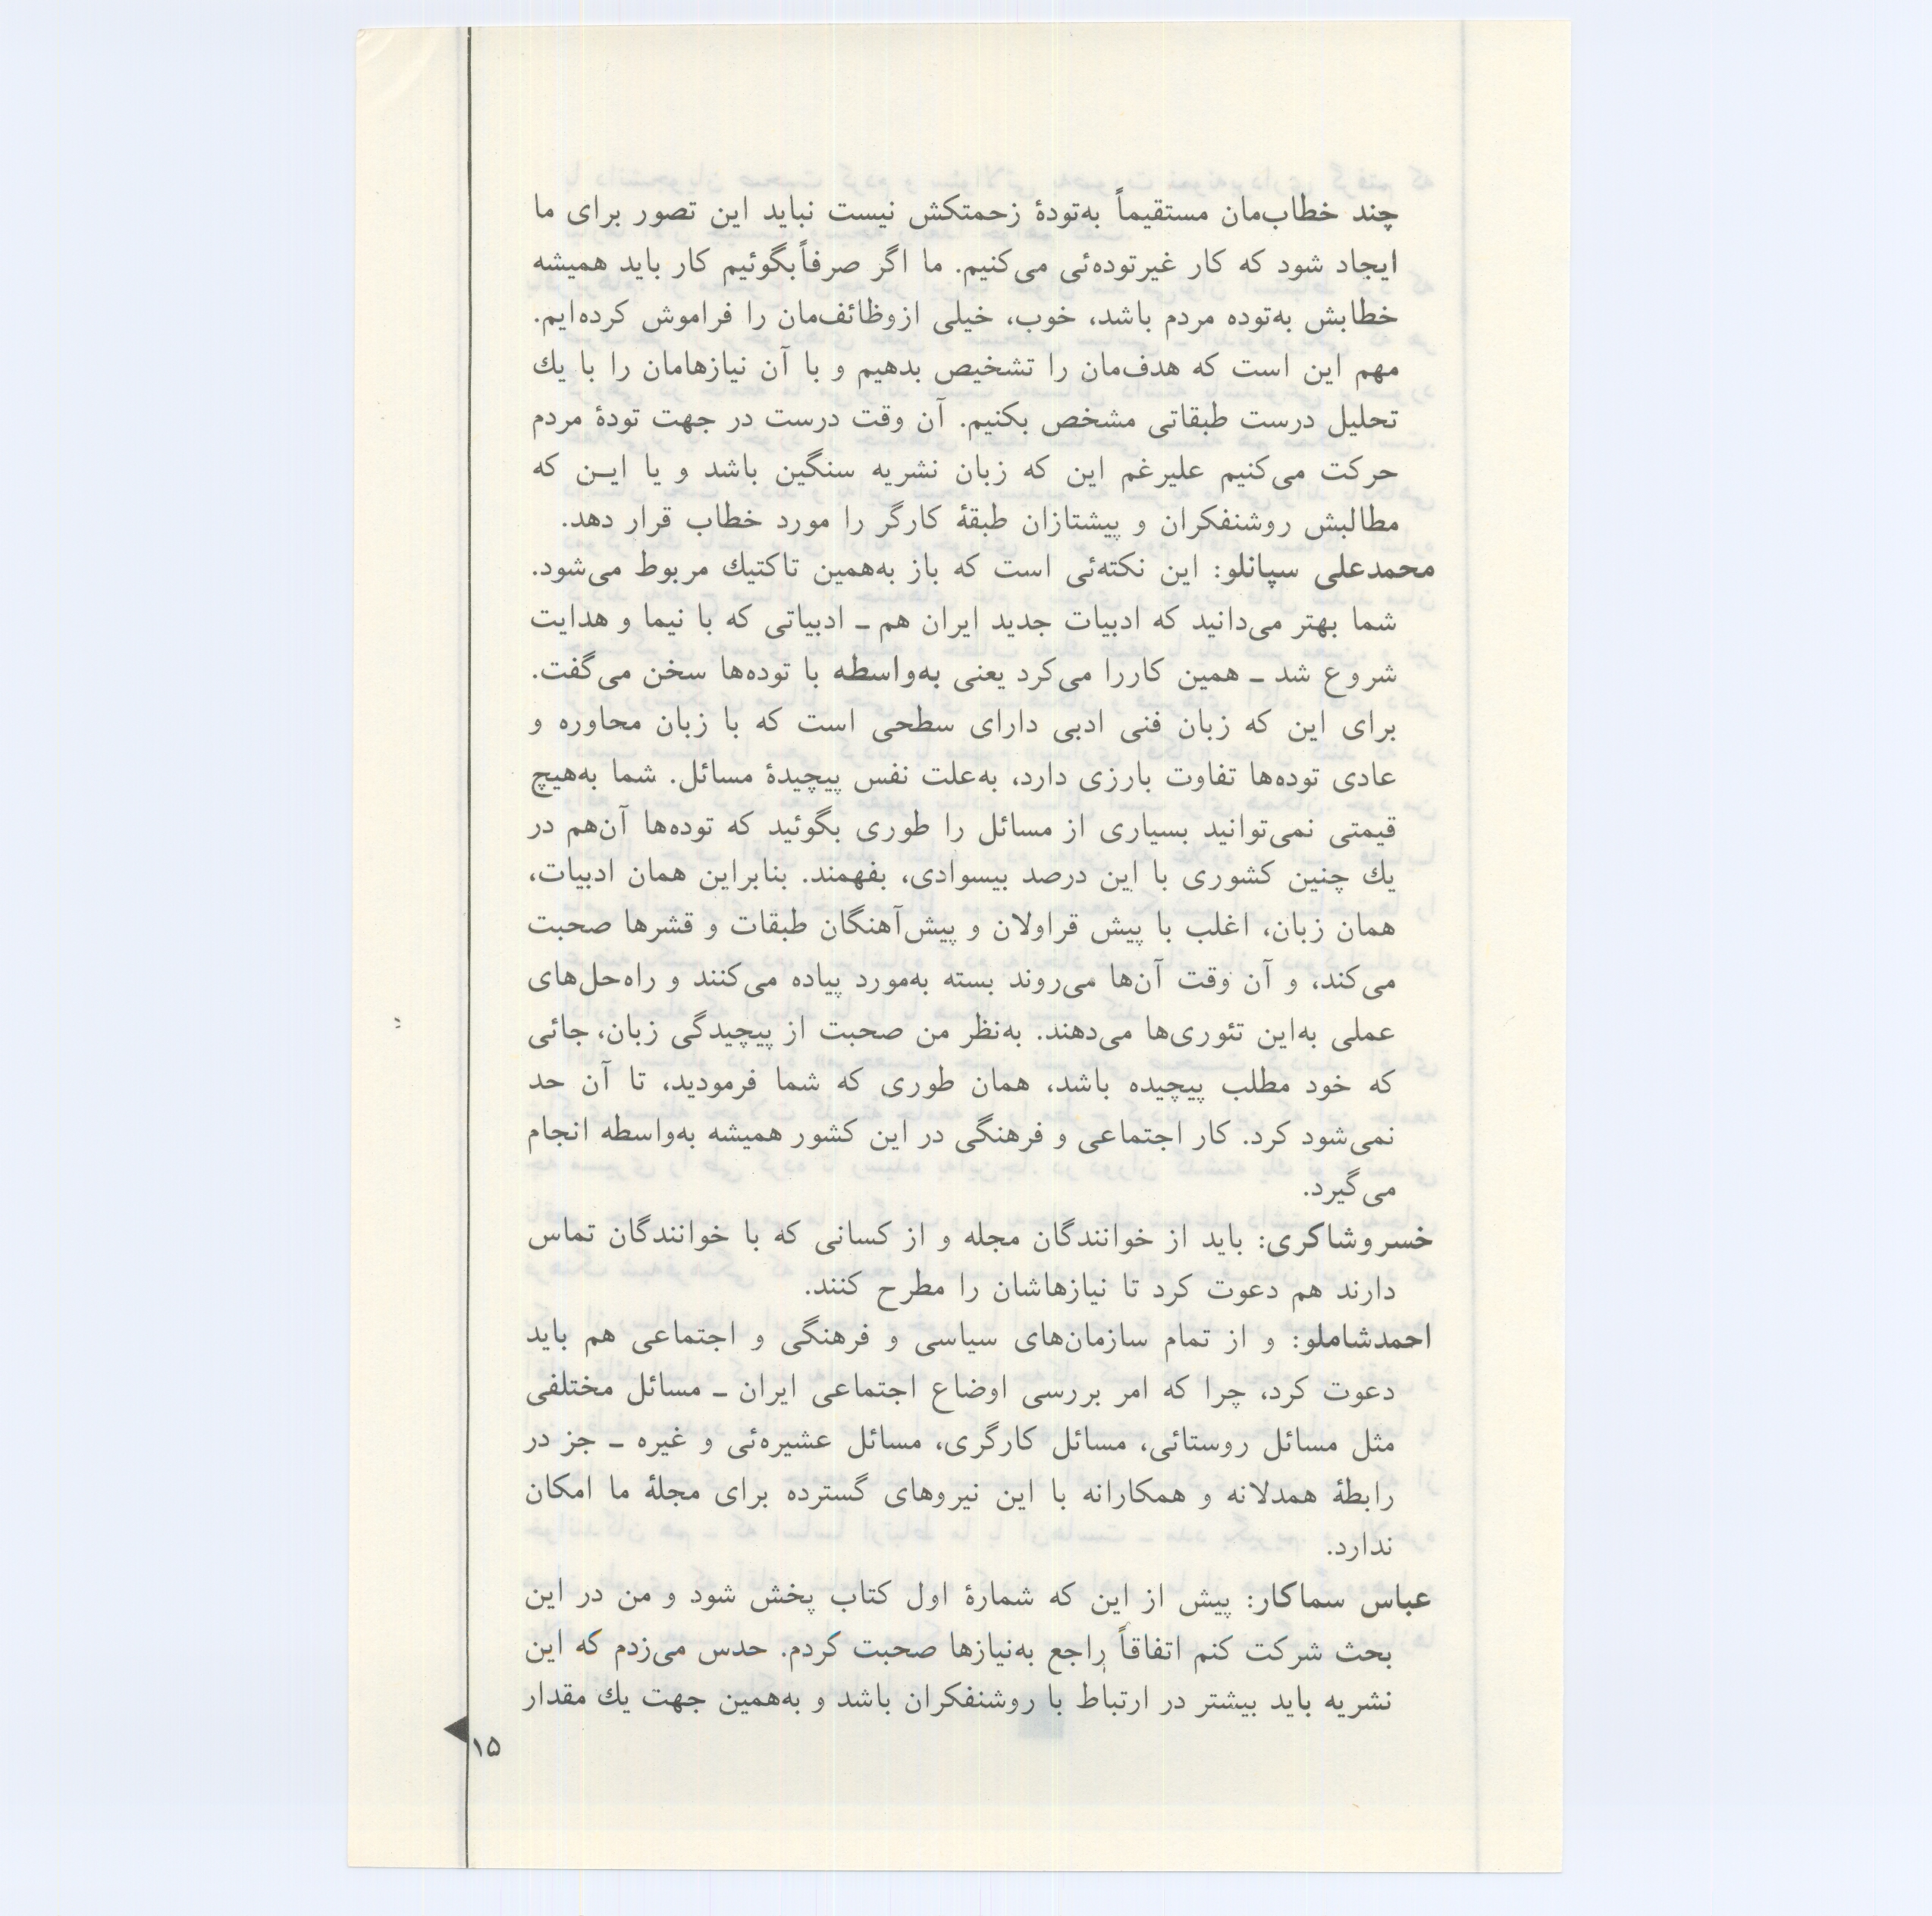 چند خطاب‌مان مستقیماً به‌تودهٔ زحمتکش نیست نباید این تصور برای ما
ایجاد شود که کار غیرتوده‌ئی می‌کنیم. ما اگر صرفاًبگوئیم کار باید همیشه
خطابش به‌توده مردم باشد، خوب، خیلی ازوظائف‌مان را فراموش کرده‌ایم.
مهم این است که هدف‌مان را تشخیص بدهیم و با آن نیازهامان را با یك
تحلیل درست طبقاتی مشخص بکنیم. آن وقت درست در جهت تودهٔ مردم
حرکت می‌کنیم علیرغم این که زبان نشریه سنگین باشد و یا ایـن که
مطالبش روشنفکران و پیشتازان طبقهٔ کارگر را مورد خطاب قرار دهد.
محمدعلی سپانلو: این نکته‌ئی است که باز به‌همین تاکتیك مربوط می‌شود.
شما بهتر می‌دانید که ادبیات جدید ایران هم ـ ادبیاتی که با نیما و هدایت
شروع شد ـ همین کاررا می‌کرد یعنی به‌واسطه با توده‌ها سخن می‌گفت.
برای این که زبان فنی ادبی دارای سطحی است که با زبان محاوره و
عادی توده‌ها تفاوت بارزی دارد، به‌علت نفس پیچیدهٔ مسائل. شما به‌هیچ
قیمتی نمی‌توانید بسیاری از مسائل را طوری بگوئید که توده‌ها آن‌هم در
یك چنین کشوری با این درصد بیسوادی، بفهمند. بنابراین همان ادبیات،
همان زبان، اغلب با پیش قراولان و پیش‌آهنگان طبقات و قشرها صحبت
می‌کند، و آن وقت آن‌ها می‌روند بسته به‌مورد پیاده می‌کنند و راه‌حل‌های
عملی به‌این تئوری‌ها می‌دهند. به‌نظر من صحبت از پیچیدگی زبان، جائی
که خود مطلب پیچیده باشد، همان طوری که شما فرمودید، تا آن حد
نمی‌شود کرد. کار اجتماعی و فرهنگی در این کشور همیشه به‌واسطه انجام
می‌گیرد.
خسروشاکری: باید از خوانندگان مجله و از کسانی که با خوانندگان تماس
دارند هم دعوت کرد تا نیازهاشان را مطرح کنند.
احمدشاملو: و از تمام سازمان‌های سیاسی و فرهنگی و اجتماعی هم باید
دعوت کرد، چرا که امر بررسی اوضاع اجتماعی ایران ـ مسائل مختلفی
مثل مسائل روستائی، مسائل کارگری، مسائل عشیره‌ئی و غیره ـ جز در
رابطهٔ همدلانه و همکارانه با این نیروهای گسترده برای مجلهٔ ما امکان
ندارد.
عباس سماکار: پیش از این که شمارهٔ اول کتاب پخش شود و من در این
بحث شرکت کنم اتفاقاً راجع به‌نیازها صحبت کردم. حدس می‌زدم که این
نشریه باید بیشتر در ارتباط با روشنفکران باشد و به‌همین جهت یك مقدار
۱۵